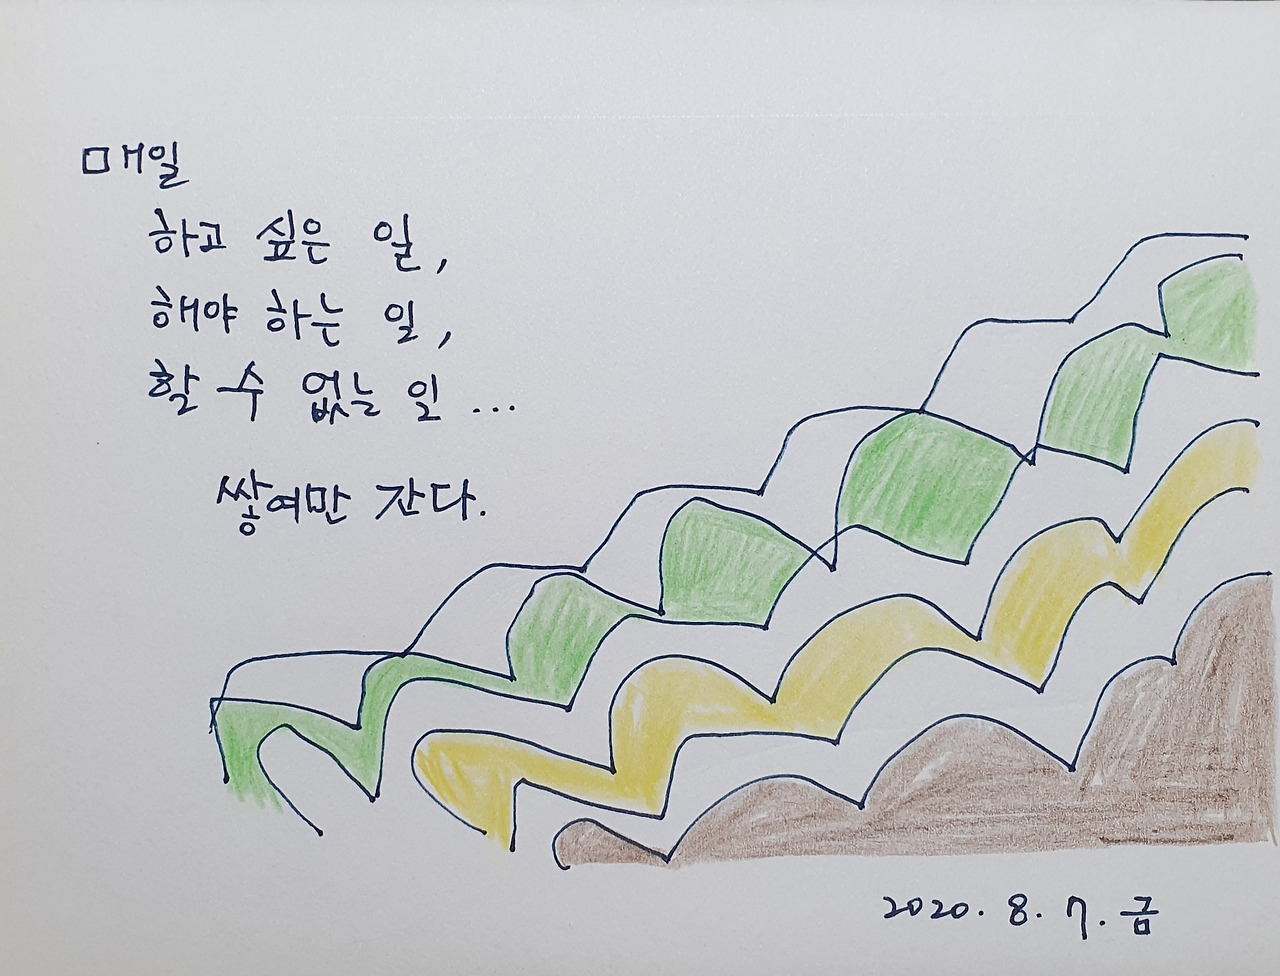 매일
하고 싶은 일,
해야 하는 일,
할 수 없는 일...
쌓여만 간다.
2020. 8. 7. 금